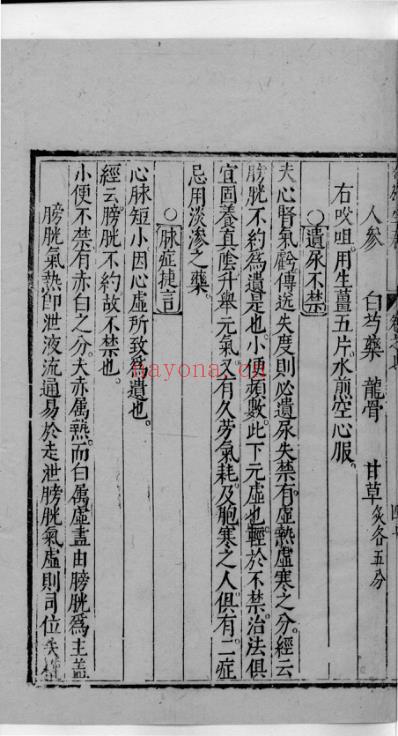 人參　白芍藥　龍骨　甘草炙各五分
右㕮咀用生薑五片水煎空心服
○遺尿不禁
夫心腎氣虧傳送失度則必遺尿失禁有虛熱虛寒之分經云
膀胱不約為遺是也小便頻數此下元虛也輕於不禁治法俱
宜固養真陰升舉元氣又有久勞氣耗及胞寒之人俱有二症
忌用淡滲之藥
○脉症捷言
心脉短小因心虛所致為遺也
經云膀胱不約故不禁也
小便不禁有赤白之分夫赤属熱而白属虛盖由膀胱為主盖
膀胱氣熱即泄液流通易於走泄膀胱氣虛則司位失
nayona.cn